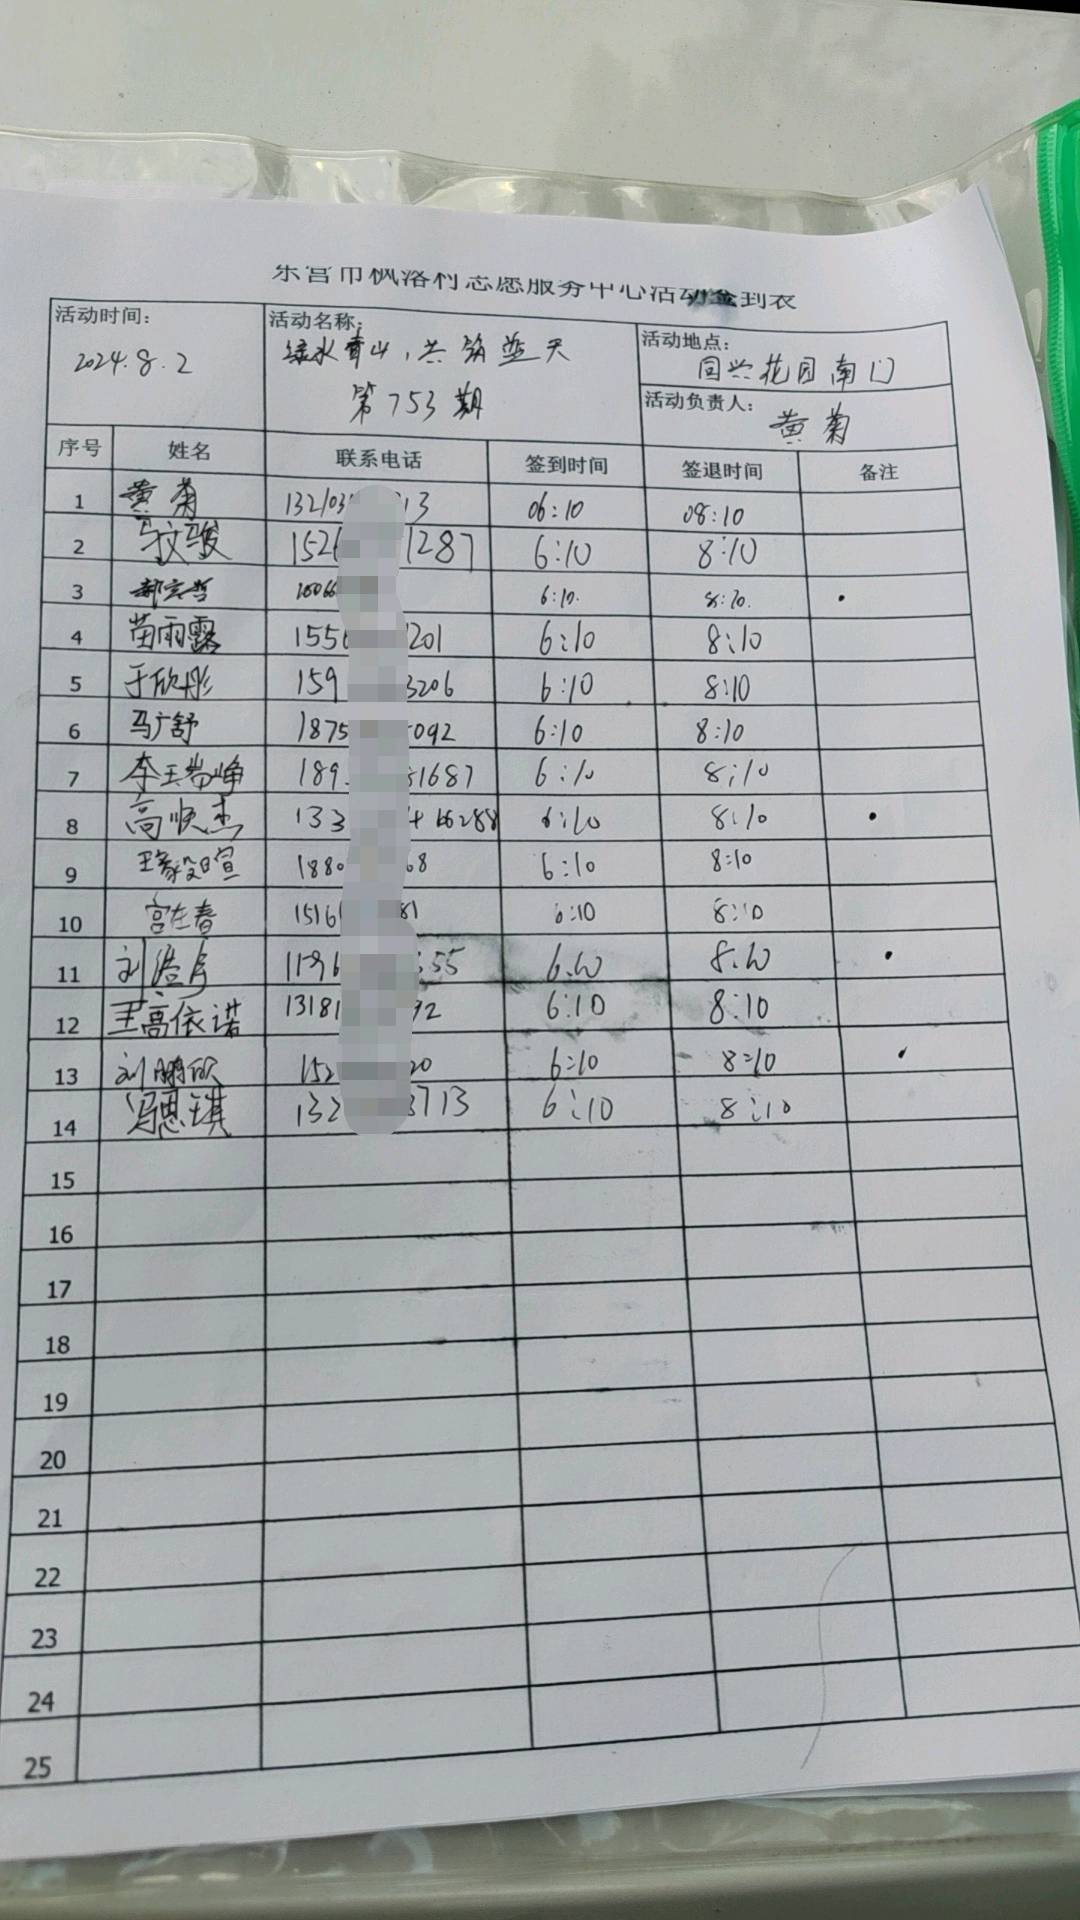 东营市枫洛利志愿服务中心活动签到表
活动时间: 活动名称: 活动地点:
2024.8.2 绿水青山,共筑蓝天 同兴花园南门
第753期 活动负责人: 黄菊
序号 姓名 联系电话 签到时间 签退时间 备注
1 黄菊 132103 13 06:10 08:10
2 马文骏 152 1287 6:10 8:10
3 郝宗哲 6:10. 8:10.
4 苗雨露 155 201 6:10 8:10
5 于欣彤 159 3206 6:10 8:10
6 马广舒 1875 092 6:10 8:10
7 李王岩峥 189 1687 6:10 8:10
8 高 杰 133 66288 6:10 8:10
9 王 宣 1880 68 6:10 8:10
10 宫在春 1516 81 6:10 8:10
11 刘浩 55 6:10 8:10
12 王高依诺 13181 92 6:10 8:10
13 刘鹏欣 152 20 6:10 8:10
14 冯思琪 132 8713 6:10 8:10
15
16
17
18
19
20
21
22
23
24
25